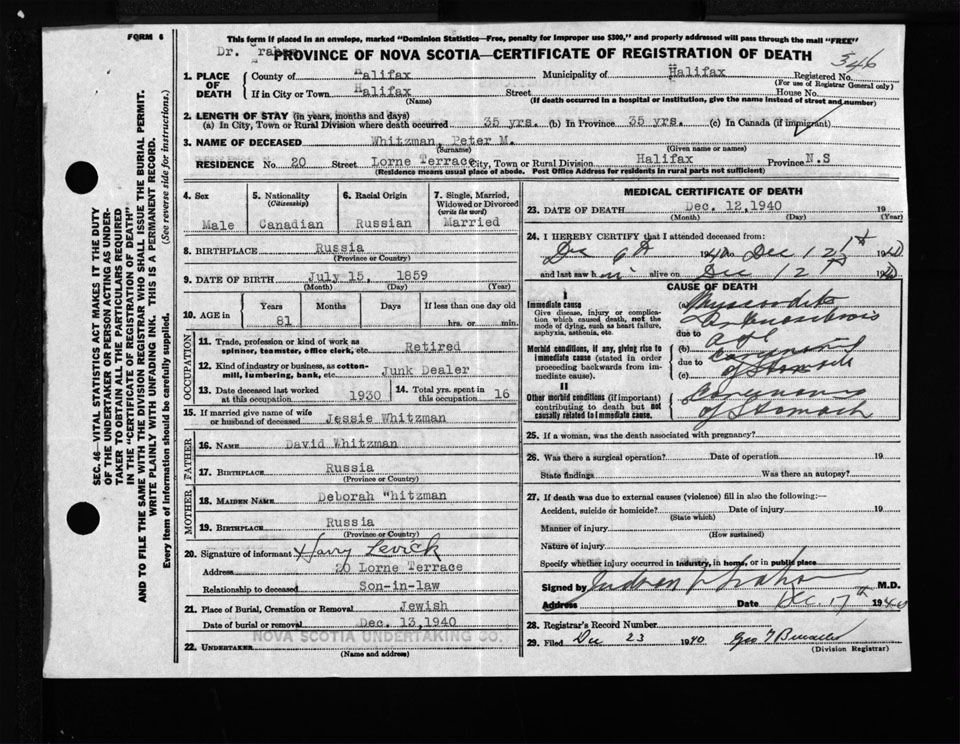 FORM 6
This form if placed in an envelope, marked "Dominion Statistics—Free, penalty for improper use $300," and properly addressed will pass through the mail "FREE"
Dr. Graham
PROVINCE OF NOVA SCOTIA—CERTIFICATE OF REGISTRATION OF DEATH
346
1. PLACE OF DEATH
County of Halifax Municipality of Halifax Registered No.
(For use of Registrar General only)
If in City or Town Halifax Street House No.
(Name) (If death occurred in a hospital or institution, give the name instead of street and number)
2. LENGTH OF STAY (in years, months and days)
(a) In City, Town or Rural Division where death occurred 35 yrs. (b) In Province 35 yrs. (c) In Canada (if immigrant)
3. NAME OF DECEASED Whitzman, Peter M.
(Surname) (Given name or names)
RESIDENCE No. 20 Street Lorne Terrace City, Town or Rural Division Halifax Province N.S
(Residence means usual place of abode. Post Office Address for residents in rural parts not sufficient)
4. Sex
Male
5. Nationality
(Citizenship)
Canadian
6. Racial Origin
Russian
7. Single, Married, Widowed or Divorced
(write the word)
Married
8. BIRTHPLACE Russia
(Province or Country)
9. DATE OF BIRTH July 15, 1859
(Month) (Day) (Year)
10. AGE in
Years Months Days If less than one day old
81 hrs. or min.
OCCUPATION
11. Trade, profession or kind of work as
spinner, teamster, office clerk, etc. Retired
12. Kind of industry or business, as cotton-
mill, lumbering, bank, etc. Junk Dealer
13. Date deceased last worked
at this occupation 1930
14. Total yrs. spent in
this occupation 16
15. If married give name of wife
or husband of deceased Jessie Whitzman
FATHER
16. NAME David Whitzman
17. BIRTHPLACE Russia
(Province or Country)
MOTHER
18. MAIDEN NAME Deborah "hitzman
19. BIRTHPLACE Russia
(Province or Country)
20. Signature of informant Harry Levick
Address 20 Lorne Terrace
Relationship to deceased Son-in-law
21. Place of Burial, Cremation or Removal Jewish
Date of burial or removal Dec. 13, 1940
NOVA SCOTIA UNDERTAKING CO.
22. UNDERTAKER
(Name and address)
MEDICAL CERTIFICATE OF DEATH
23. DATE OF DEATH Dec. 12, 1940 19
(Month) (Day) (Year)
24. I HEREBY CERTIFY that I attended deceased from:
Dec 1940 to Dec 12 1940
and last saw h im alive on Dec 12 1940
CAUSE OF DEATH
I
Immediate cause
Give disease, injury or complica-
tion which caused death, not the
mode of dying, such as heart failure,
asphyxia, asthenia, etc.
(a) Myocarditis
due to
Morbid conditions, if any, giving rise to
immediate cause (stated in order
proceeding backwards from im-
mediate cause).
(b)
due to
(c) of Stomach
II
Other morbid conditions (if important)
contributing to death but not
causally related to immediate cause.
Carcinoma
of Stomach
25. If a woman, was the death associated with pregnancy?
26. Was there a surgical operation? Date of operation 19
State findings Was there an autopsy?
27. If death was due to external causes (violence) fill in also the following:—
Accident, suicide or homicide? Date of injury 19
(State which)
Manner of injury
(How sustained)
Nature of injury
Specify whether injury occurred in industry, in home, or in public place
Signed by Judson Graham M.D.
Address Date Dec. 17th 1940
28. Registrar's Record Number
29. Filed Dec 23 1940
(Division Registrar)
SEC. 46—VITAL STATISTICS ACT MAKES IT THE DUTY
OF THE UNDERTAKER OR PERSON ACTING AS UNDER-
TAKER TO OBTAIN ALL THE PARTICULARS REQUIRED
IN THE "CERTIFICATE OF REGISTRATION OF DEATH"
AND TO FILE THE SAME WITH THE DIVISION REGISTRAR WHO SHALL ISSUE THE BURIAL PERMIT.
WRITE PLAINLY WITH UNFADING INK. THIS IS A PERMANENT RECORD.
Every item of Information should be carefully supplied. (See reverse side for instructions.)